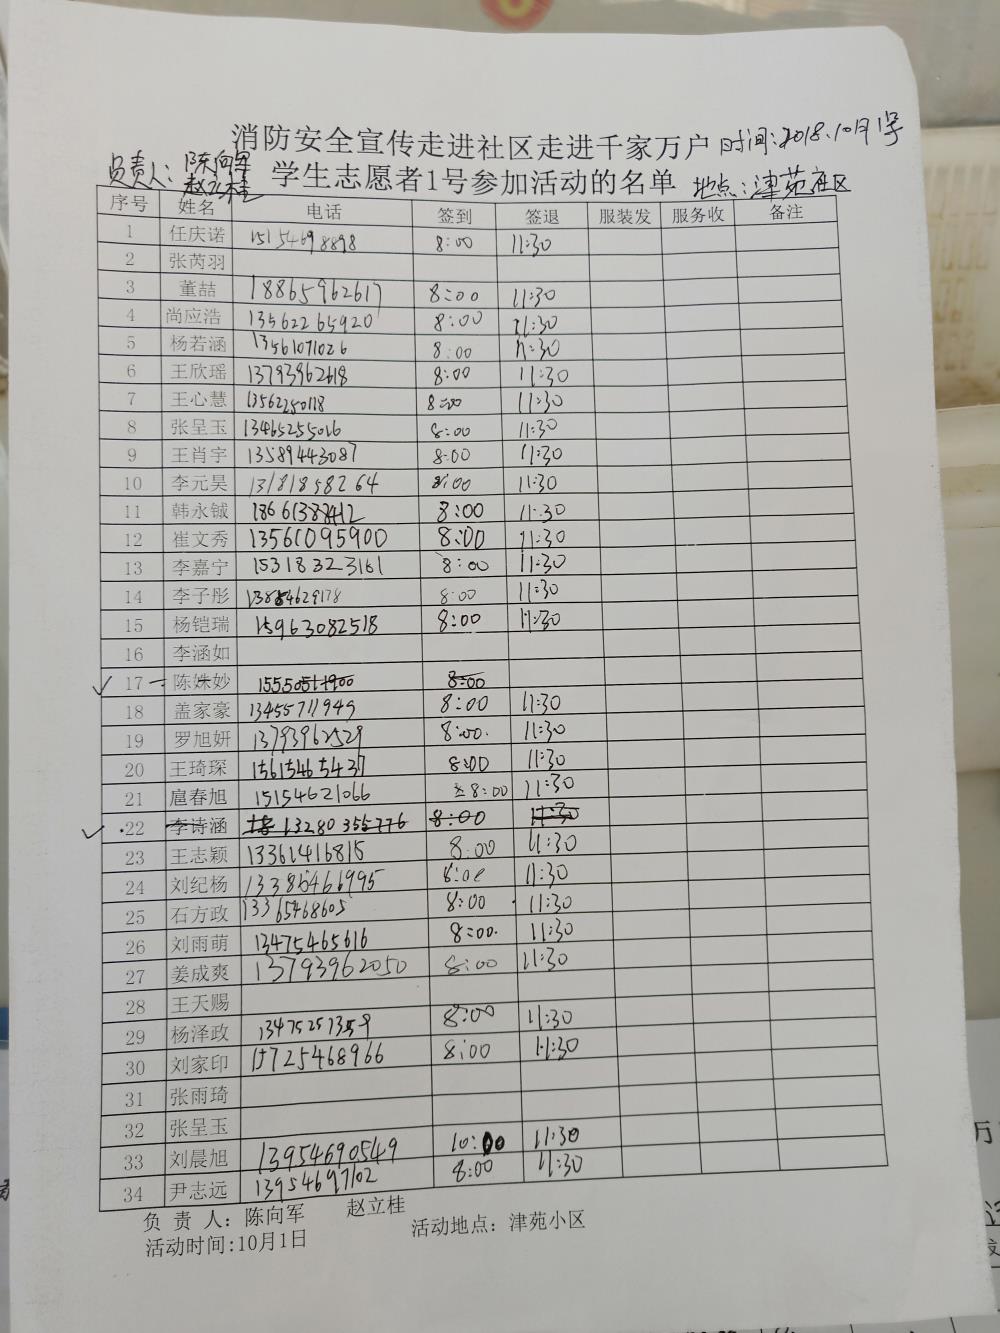 消防安全宣传走进社区走进千家万户 时间:2018.10月1号
负责人: 陈向军 赵立桂 学生志愿者1号参加活动的名单 地点:津苑社区
序号 姓名 电话 签到 签退 服装发 服务收 备注
1 任庆诺 15154698898 8:00 11:30
2 张芮羽
3 董喆 18865962617 8:00 11:30
4 尚应浩 13562265920 8:00 11:30
5 杨若涵 13561071026 8:00 11:30
6 王欣瑶 13793962618 8:00 11:30
7 王心慧 13562250118 8:00 11:30
8 张呈玉 13465255016 8:00 11:30
9 王肖宇 13589443087 8:00 11:30
10 李元昊 13181858264 8:00 11:30
11 韩永铖 18661388412 8:00 11:30
12 崔文秀 13561095900 8:00 11:30
13 李嘉宁 15318323161 8:00 11:30
14 李子彤 13854629178 8:00 11:30
15 杨铠瑞 15963082518 8:00 11:30
16 李涵如
17 陈姝妙 15550511900 8:00
18 盖家豪 13455711949 8:00 11:30
19 罗旭妍 13793962529 8:00. 11:30
20 王琦琛 15615465437 8:00 11:30
21 扈春旭 15154621066 8:00 11:30
22 李诗涵 13280355776 8:00 11:30
23 王志颖 13361416815 8:00 11:30
24 刘纪杨 13386466995 8:00 11:30
25 石方政 13365468605 8:00 11:30
26 刘雨萌 13475465616 8:00. 11:30
27 姜成爽 13793962050 8:00 11:30
28 王天赐
29 杨泽政 13475257359 8:00 11:30
30 刘家印 15725468966 8:00 11:30
31 张雨琦
32 张呈玉
33 刘晨旭 13954690549 10:00 11:30
34 尹志远 13954697102 8:00 11:30
负 责 人: 陈向军 赵立桂
活动时间:10月1日 活动地点: 津苑小区